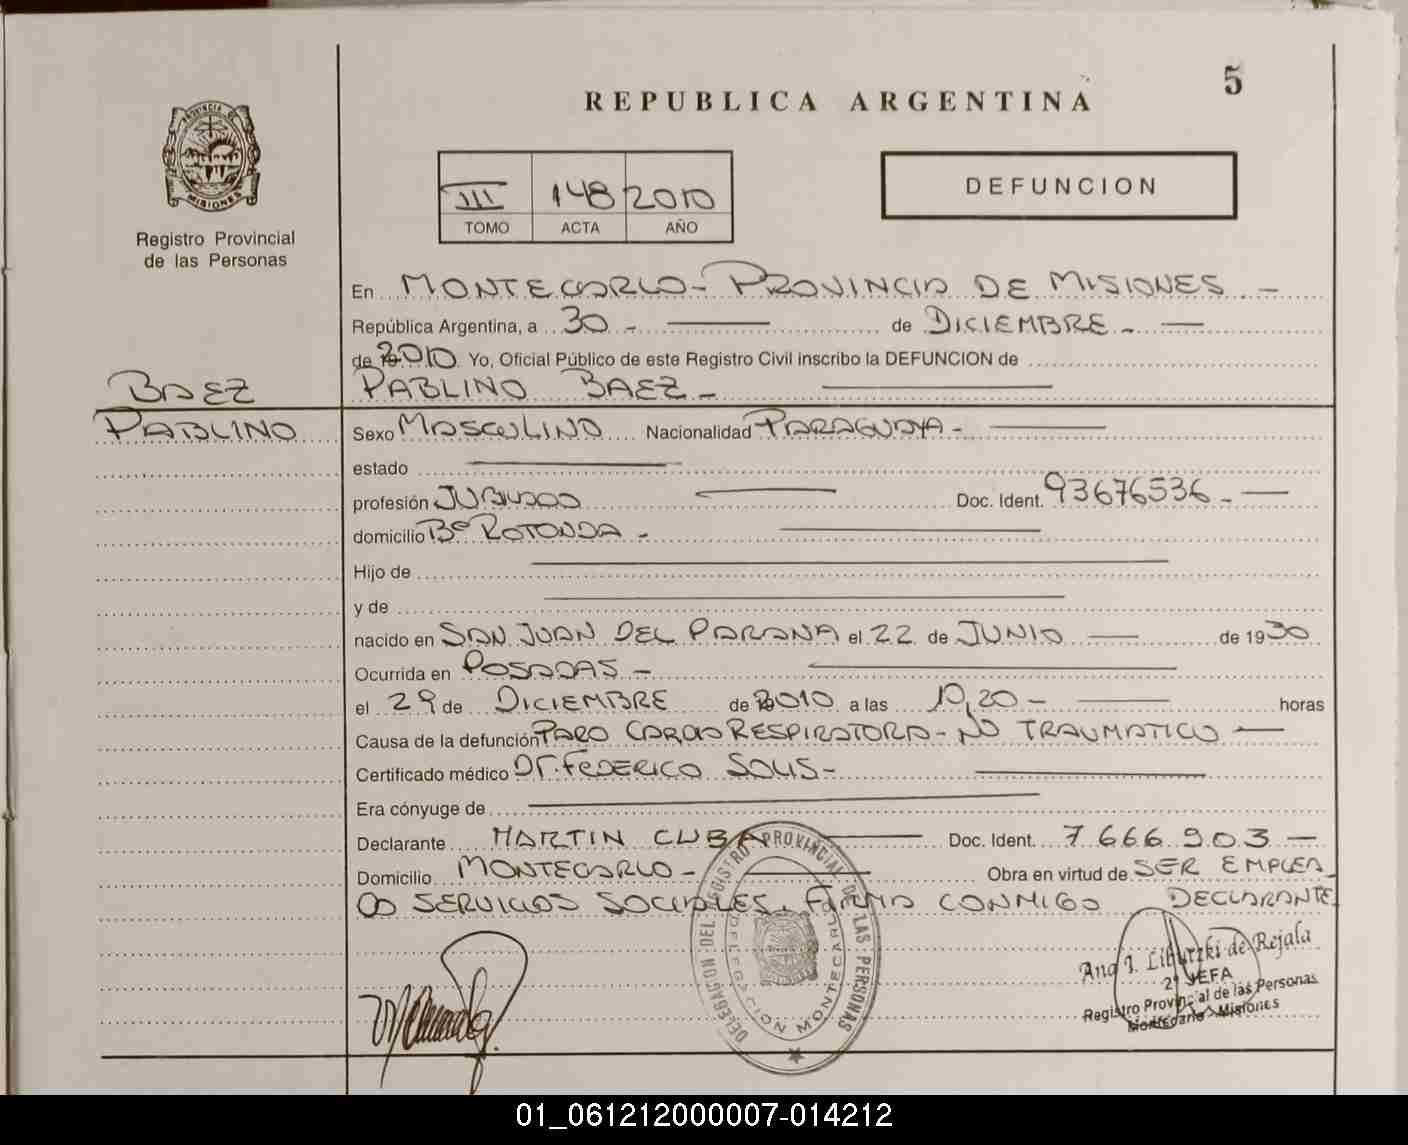 5
REPUBLICA ARGENTINA
PROVINCIA DE
MISIONES
Registro Provincial
de las Personas
III 148 2010
TOMO ACTA AÑO
DEFUNCION
En MONTECARLO - PROVINCIA DE MISIONES -
República Argentina, a 30 - de DICIEMBRE -
de 2010 Yo, Oficial Público de este Registro Civil inscribo la DEFUNCION de
BAEZ PABLINO BAEZ -
PABLINO Sexo MASCULINO Nacionalidad PARAGUAYA -
estado
profesión JUBILADO Doc. Ident. 93676536 -
domicilio Bº ROTONDA -
Hijo de
y de
nacido en SAN JUAN DEL PARANA el 22 de JUNIO de 1930
Ocurrida en POSADAS -
el 29 de DICIEMBRE de 2010 a las 10,20 - horas
Causa de la defunción PARO CARDIO RESPIRATORIO - NO TRAUMATICO
Certificado médico Dr. FEDERICO SOLIS -
Era cónyuge de
Declarante MARTIN CUBA Doc. Ident. 7.666.903 -
Domicilio MONTECARLO - Obra en virtud de SER EMPLEA
DO SERVICIOS SOCIALES. FIRMA CONMIGO DECLARANTE
DELEGACION DEL REGISTRO PROVINCIAL DE LAS PERSONAS
DELEGACION MONTECARLO
Ana I. de Rejala
2º JEFA
Registro Provincial de las Personas
Montecarlo - Misiones
01_061212000007-014212